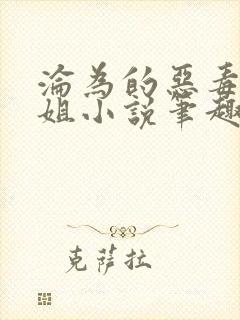 淪為的惡毒
姐小說筆趣
克薩拉